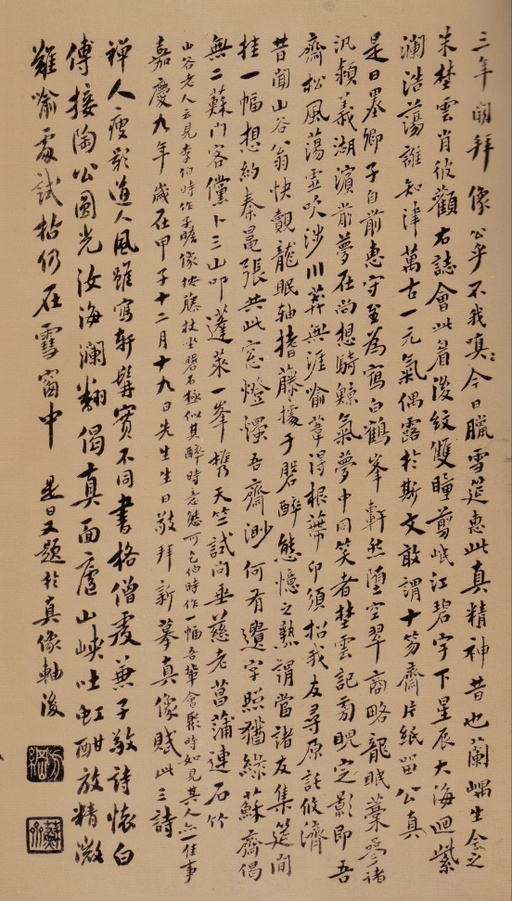 三年閣拜像公乎不我嗔今日臘雪筵惠此真精神昔也蘭嵎生含之
朱楚雲肖彼顴右誌會此眉後紋雙瞳剪岷江碧宇下星辰大海迴紫
瀾浩蕩誰知津萬古一元氣偶露於斯文敢謂十笏齋片紙留公真
是日墨卿子自前惠守至為寫白鶴峯軒然墮空翠商略龍眠藁
汎潁義湖濱前夢在尚想騎鯨氣夢中同笑者楚雲記旁睨定影即吾
齋松風蕩雲吹涉川葬無涯喻葦得根蒂卬須招我友尋原託攸濟
昔聞山谷翁快覩龍眠軸揩藤據于磐醉態憶之熟謂當諸友集筵間
挂一幅想約秦晁張共此窓燈濕吾齋渺何有遷字照猶綠蘇齋偈
無二蘇門客儻卜三山叩蓬萊一峯攜天竺試問垂慈老菖蒲連石竹
山谷老人云見李伯時作子瞻像按藤杖坐磐石極似其醉時意態可乞伯時作一幅吾輩會聚時如見其人亦一佳事
嘉慶九年歲在甲子十二月十九日先生生日敬拜新摹真像賦此三詩
禪人瘦影道人風雖寫軒髯實不同書格僧虔兼子敬詩懷白
傅接陶公圓光汝海瀾翻偈真面廬山峽吐虹酣放精微
難喻處試拈仍在雪窗中 是日又題於真像軸後